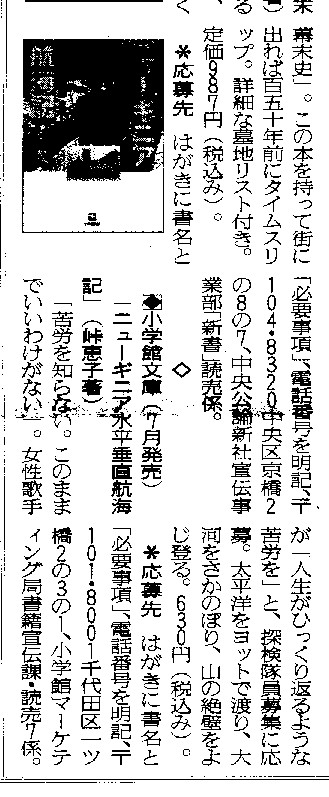 末
幕末史」。この本を持って街に
出れば百五十年前にタイムスリ
ップ。詳細な墓地リスト付き。
定価987円（税込み）。
＊応募先　はがきに書名と
「必要事項」、電話番号を明記、〒
104・8320中央区京橋2
の8の7、中央公論新社宣伝事
業部「新書」読売係。
◇
◆小学館文庫（7月発売）
「ニューギニア水平垂直航海
記」（峠恵子著）
「苦労を知らない。このまま
でいいわけがない」。女性歌手
が「人生がひっくり返るような
苦労を」と、探検隊員募集に応
募。太平洋をヨットで渡り、大
河をさかのぼり、山の絶壁をよ
じ登る。630円（税込み）。
＊応募先　はがきに書名と
「必要事項」、電話番号を明記、〒
101・8001千代田区一ツ
橋2の3の1、小学館マーケテ
ィング局書籍宣伝課・読売7係。